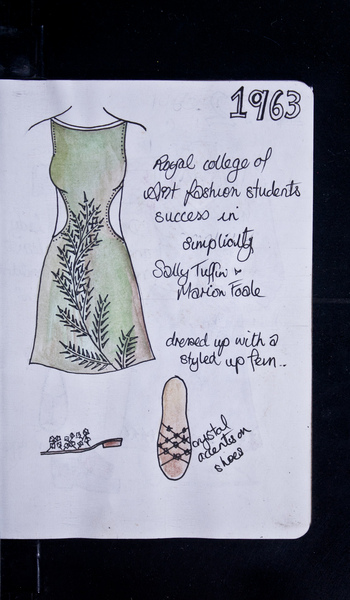 1963
Royal college of
Art fashion students
success in
simplicity
Sally Tuffin &
Marion Foale
dressed up with a
styled up fern..
crystal
accents on
shoes